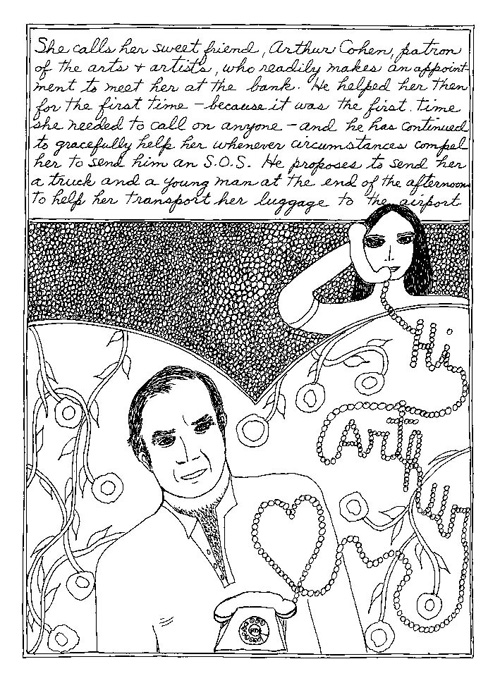 She calls her sweet friend, Arthur Cohen, patron
of the arts + artists, who readily makes an appoint-
ment to meet her at the bank. He helped her then
for the first time – because it was the first time
she needed to call on anyone – and he has continued
to gracefully help her whenever circumstances compel
her to send him an S.O.S. He proposes to send her
a truck and a young man at the end of the afternoon
to help her transport her luggage to the airport
Hi
Arthur